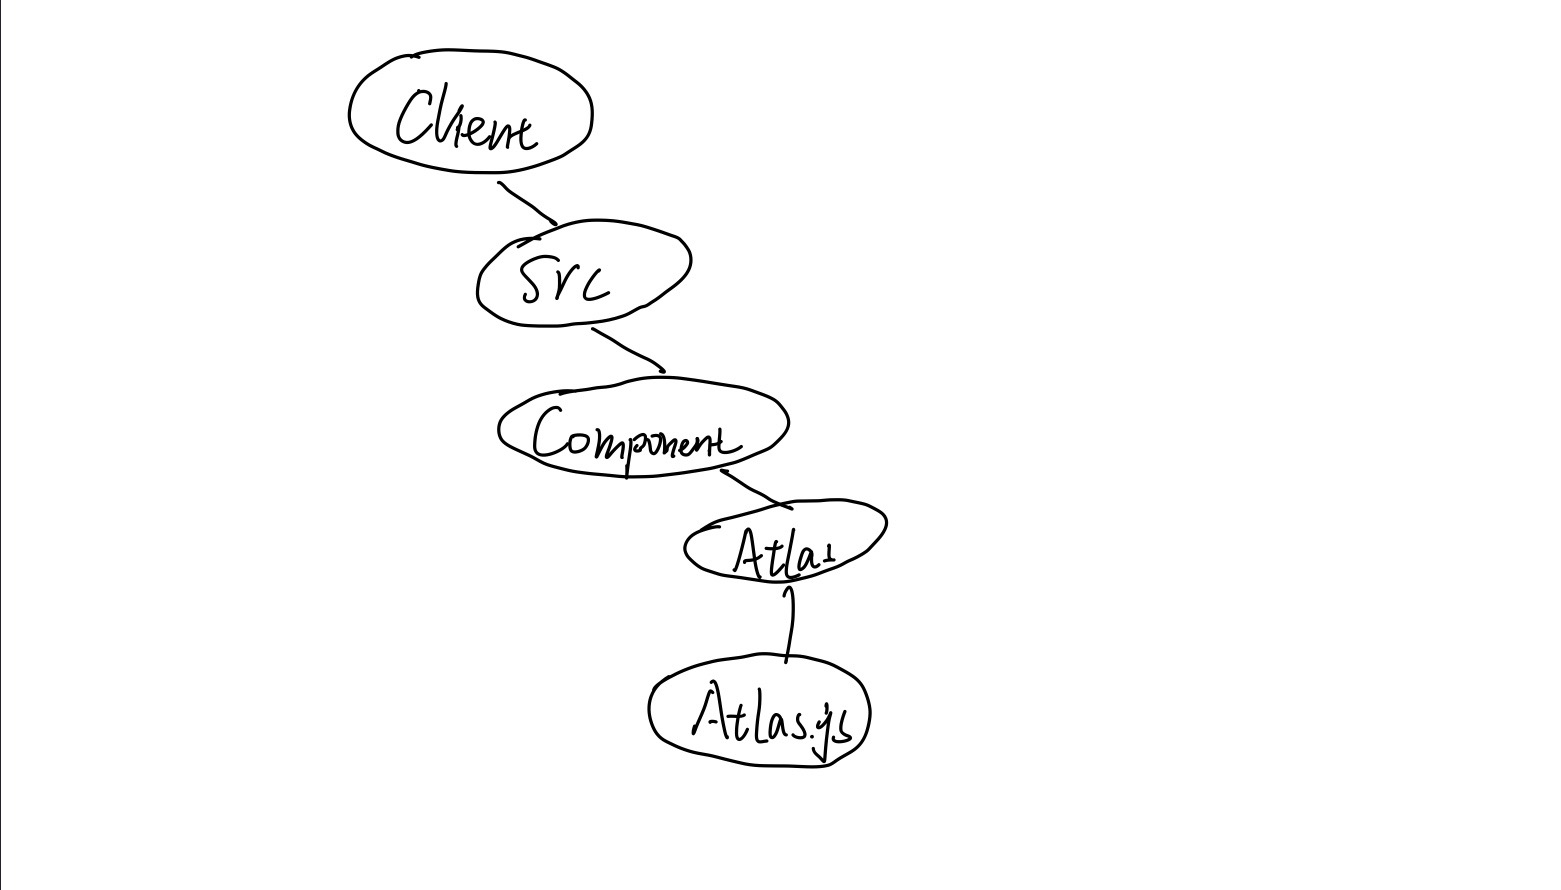 Client
Src
Component
Atlas
Atlas.js